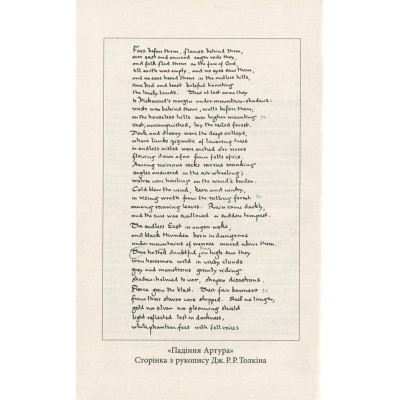 Foes before them, flames behind them,
ever east and onward eager rode they,
and folk fled them as the face of God,
till earth was empty, and no eyes saw them,
and no ears heard them in the endless hills,
save bird and beast baleful haunting
the lonely lands. Thus at last came they
to Mirkwood's margin under mountain-shadows:
waste was behind them, walls before them;
on the houseless hills ever higher mounting
vast, unvanquished, lay the veiled forest.
Dark and dreary were the deep valleys,
where limbs gigantic of lowering trees
in endless aisles were arched o'er rivers
flowing down afar from fells of ice.
Among ruinous rocks ravens croaking
eagles answered in the air wheeling;
wolves were howling on the wood's border.
Cold blew the wind, keen and wintry,
in rising wrath from the rolling forest
among roaring leaves. Rain came darkly,
and the sun was swallowed in sudden tempest.
The endless East in anger woke,
and black thunder born in dungeons
under mountains of menace moved above them.
Then halted doubtful, on high saw they
wan horsemen wild in windy clouds
grey and monstrous grimly riding
shadow-helmed to war, shapes disastrous.
Fierce grew the blast. Their fair banners
from their staves were stripped. Steel no longer,
gold nor silver nor gleaming shield
light reflected lost in darkness,
while phantom foes with fell voices
«Падіння Артура»
Сторінка з рукопису Дж. Р. Р. Толкіна